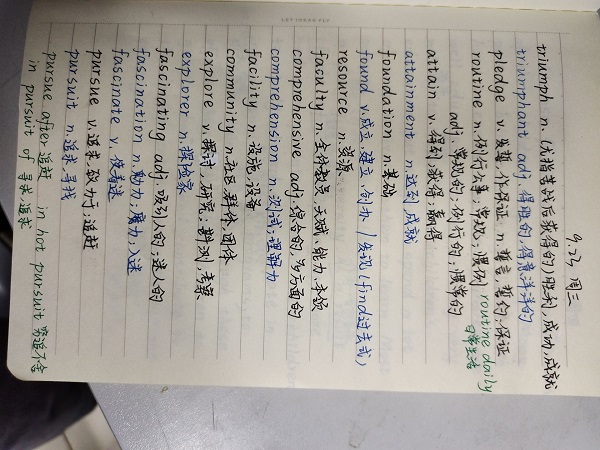 LET IDEAS FLY
9.24 周三
triumph n.(尤指苦战后获得的)胜利,成功,成就
triumphant adj.得胜的,得意洋洋的
pledge v.发誓,作保证 n.誓言,誓约;保证
routine n.例行公事;常规;惯例 routine daily
adj.常规的;例行的;惯常的 日常生活
attain v.得到,获得;赢得
attainment n.达到,成就
foundation n.基础
found v.成立,建立,创办 / 发现(find过去式)
resource n.资源
faculty n.全体教员,天赋,能力,本领
comprehensive adj.综合的,多方面的
comprehension n.测试;理解力
facility n.设施,设备
community n.社区,群体,团体
explore v.探讨,研究;勘测,考察
explorer n.探险家
fascinating adj.吸引人的;迷人的
fascination n.魅力;魔力;入迷
fascinate v.使着迷
pursue v.追求,致力于;追赶
pursuit n.追求,寻找
pursue after 追赶 in hot pursuit 穷追不舍
in pursuit of 寻求,追求